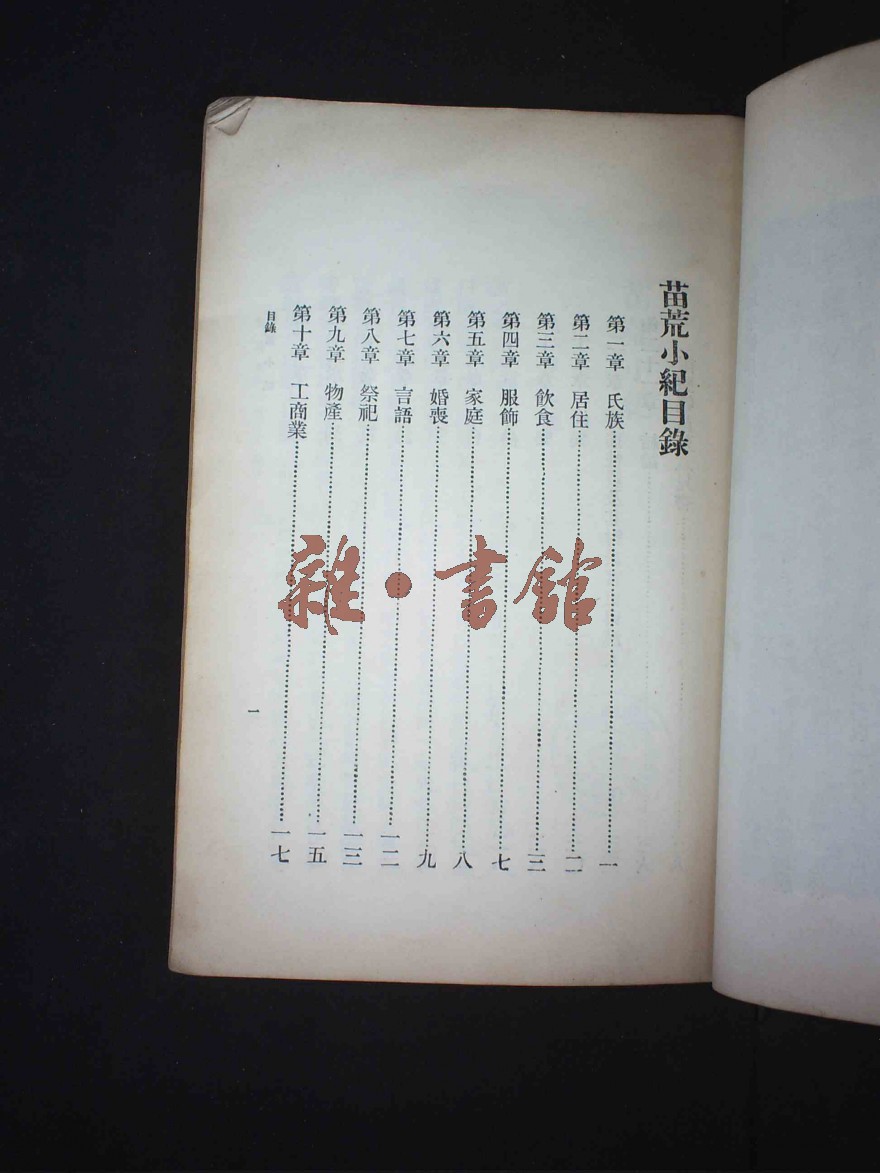 苗荒小紀目錄
第一章　氏族……一
第二章　居住……二
第三章　飲食……三
第四章　服飾……七
第五章　家庭……八
第六章　婚喪……九
第七章　言語……一二
第八章　祭祀……一三
第九章　物產……一五
第十章　工商業……一七
目錄
一
雜·書館